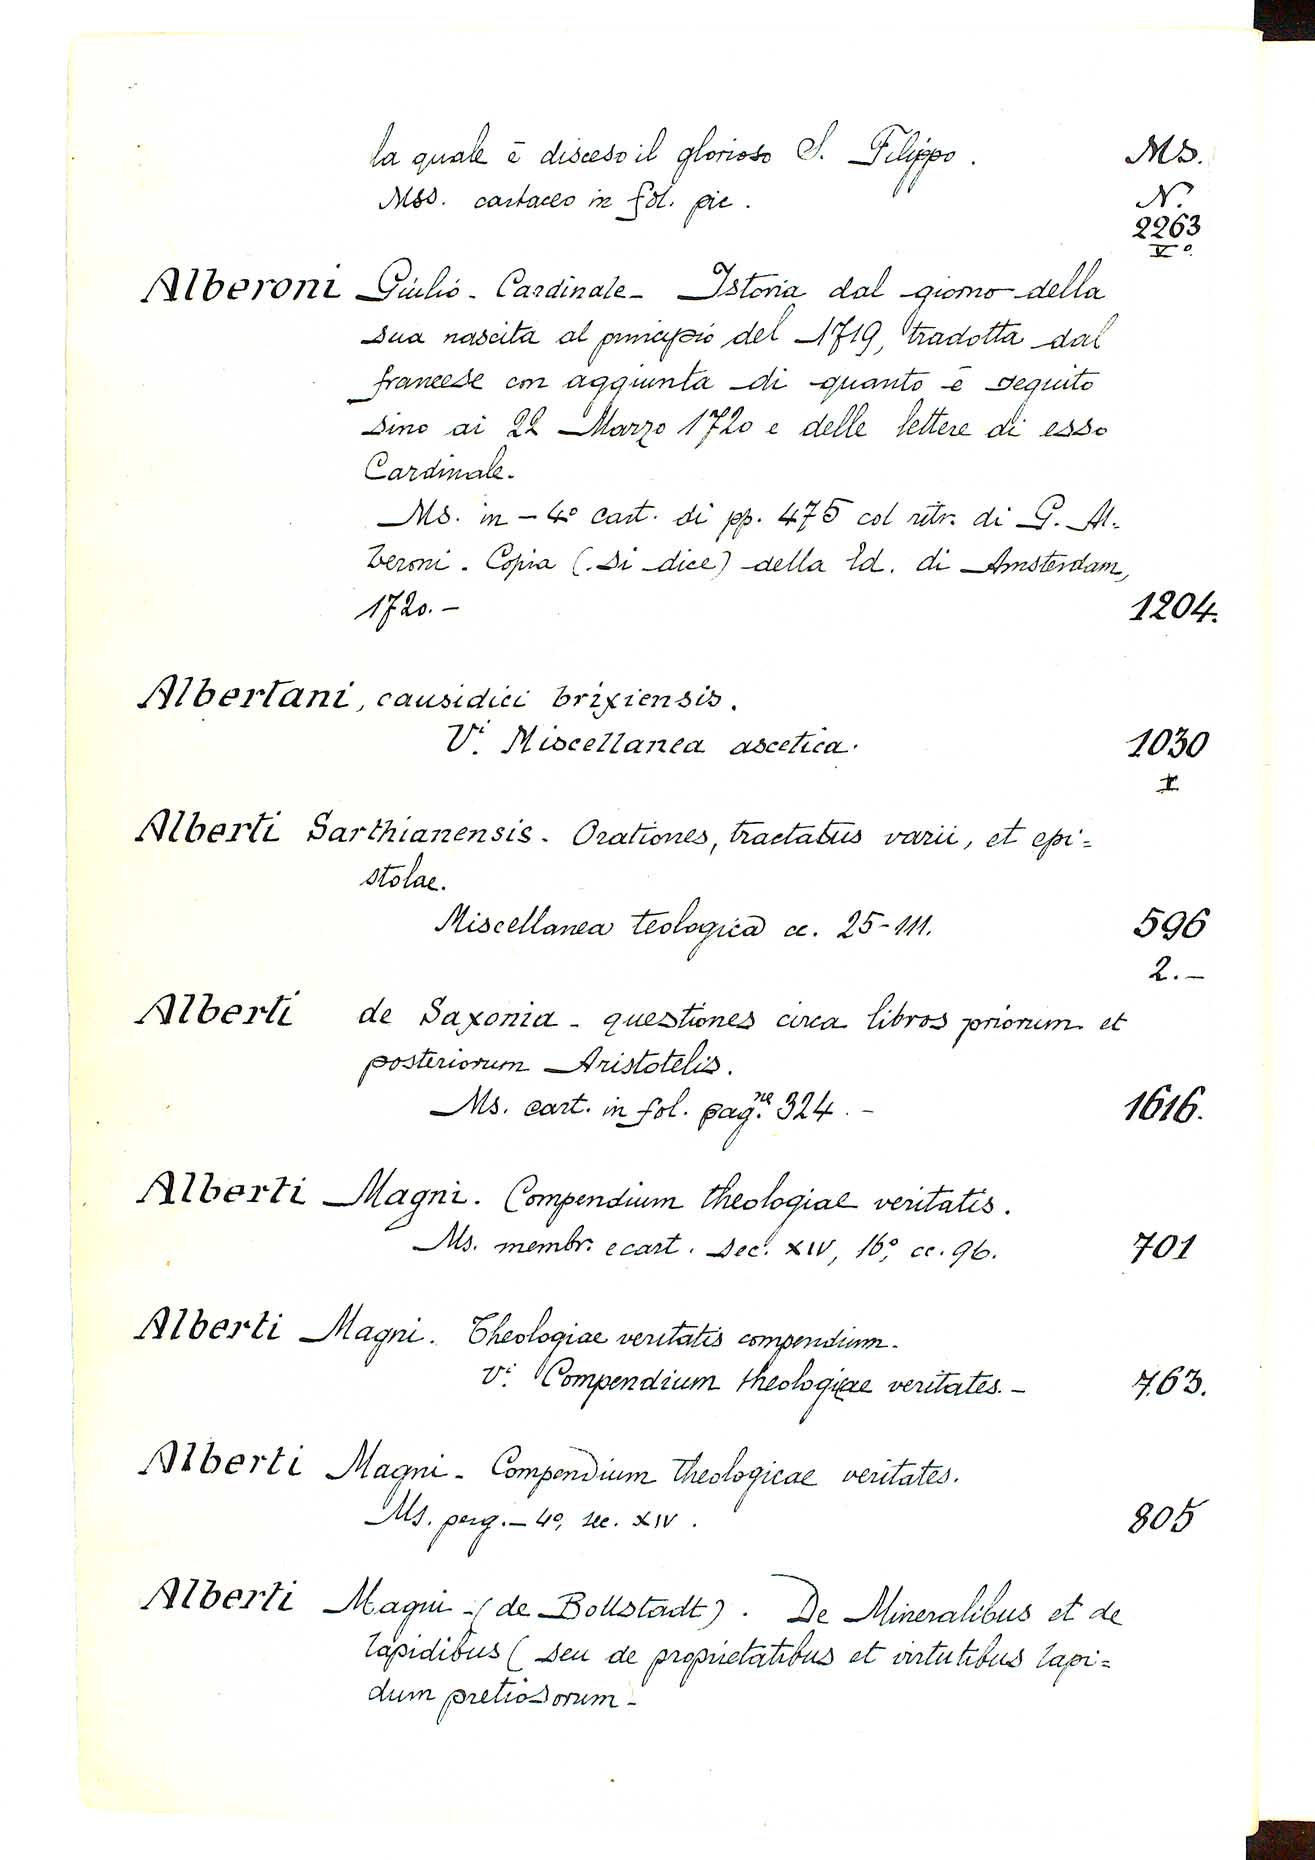 la quale è disceso il glorioso S. Filippo. Ms.
Mss. cartaceo in fol. pic. N.
2263
V°.
Alberoni Giulio - Cardinale - Istoria dal giorno della
sua nascita al principio del 1719, tradotta dal
francese con aggiunta di quanto è seguito
sino ai 22 Marzo 1720 e delle lettere di esso
Cardinale.
Ms. in-4° cart. di pp. 475 col ritr. di G. Al-
beroni. Copia (si dice) della Ed. di Amsterdam,
1720.- 1204.
Albertani, causidici brixiensis.
Vi. Miscellanea ascetica. 1030
I
Alberti Sarthianensis. Orationes, tractatus varii, et epi=
stolae.
Miscellanea teologica cc. 25-111. 596
2.-
Alberti de Saxonia - questiones circa libros priorum et
posteriorum Aristotelis.
Ms. cart. in fol. pag.ne 324.- 1616.
Alberti Magni. Compendium theologiae veritatis.
Ms. membr. e cart. sec. XIV, 16°, cc. 96. 701
Alberti Magni. Theologiae veritatis compendium.
Vi. Compendium theologicae veritates.- 763.
Alberti Magni - Compendium theologicae veritates.
Ms. perg.- 4°, sec. XIV. 805
Alberti Magni - (de Bollstadt). De Mineralibus et de
lapidibus (seu de proprietatibus et virtutibus lapi=
dum pretiosorum-